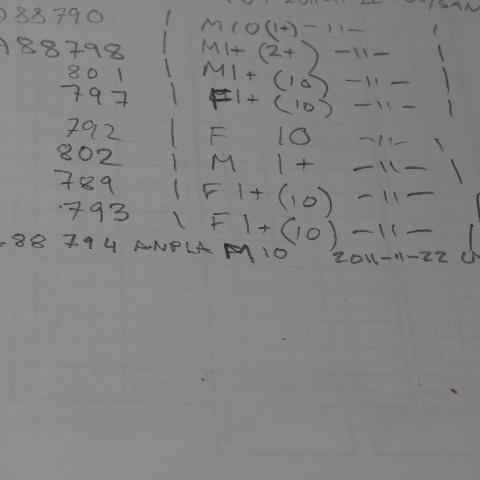 2011-11-22
88790 | M 10(1+) -11- |
A88798 | M1+ (2+) -11- |
801 | M1+ (10) -11- |
797 | F1+ (10) -11- |
792 | F 10 -11- \
802 | M 1+ -11- \
789 | F 1+ (10) -11-
793 \ F 1+ (10) -11- |
88 794 ANPLA M 10 2011-11-22